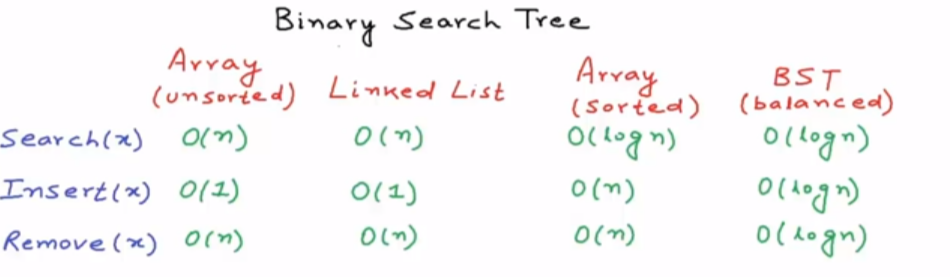 Binary Search Tree
Array (unsorted) Linked List Array (sorted) BST (balanced)
Search(x) O(n) O(n) O(log n) O(log n)
Insert(x) O(1) O(1) O(n) O(log n)
Remove(x) O(n) O(n) O(n) O(log n)